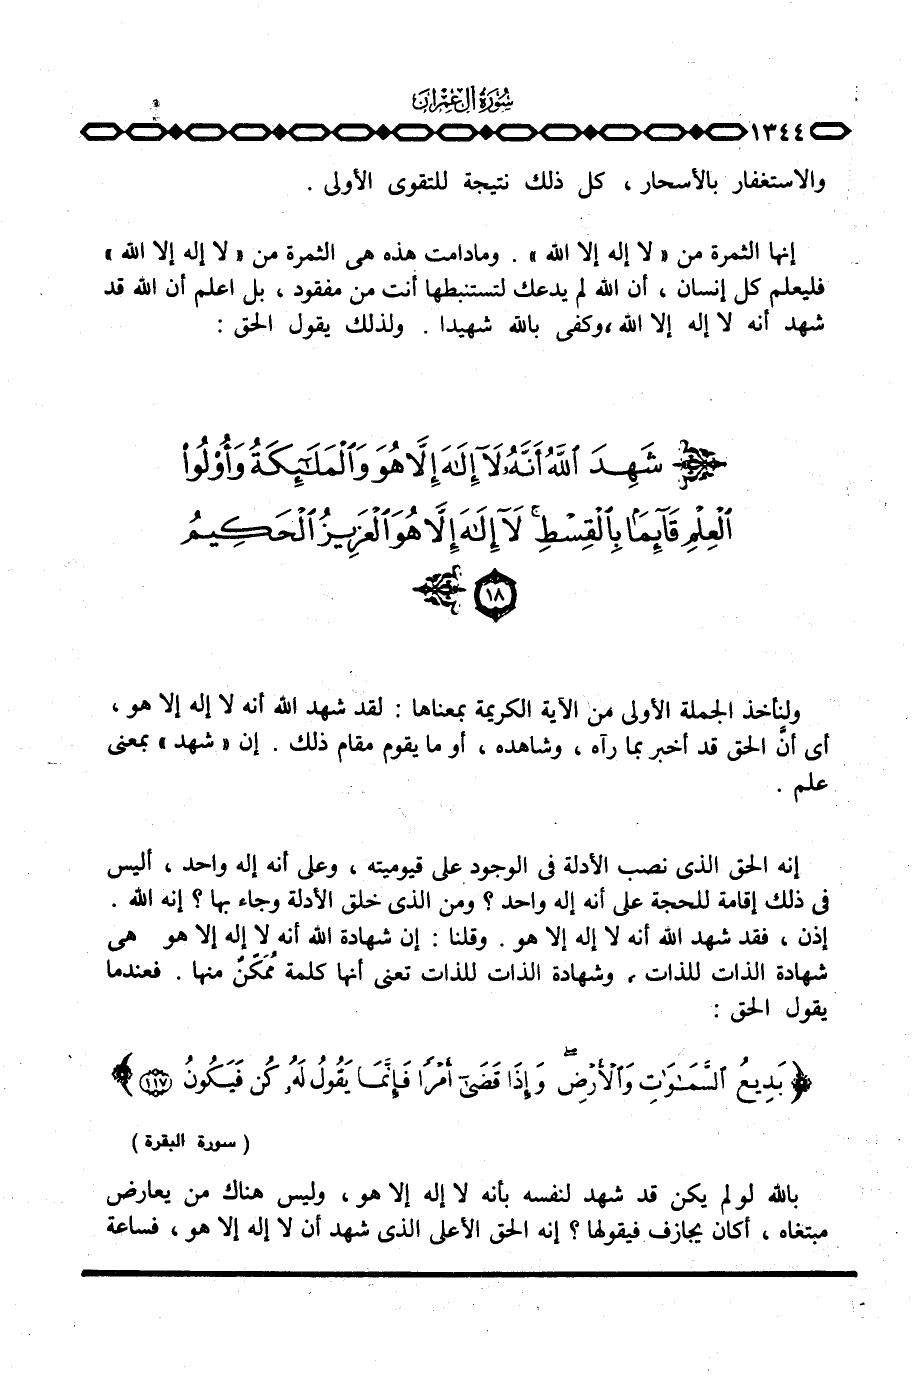 سُورَةُ آلِ عِمْرَان
١٣٤٤
والاستغفار بالأسحار ، كل ذلك نتيجة للتقوى الأولى .
إنها الثمرة من « لا إله إلا الله » . ومادامت هذه هى الثمرة من « لا إله إلا الله »
فليعلم كل إنسان ، أن الله لم يدعك لتستنبطها أنت من مفقود ، بل اعلم أن الله قد
شهد أنه لا إله إلا الله ،وكفى بالله شهيدا . ولذلك يقول الحق :
شَهِدَ ٱللَّهُ أَنَّهُۥ لَآ إِلَٰهَ إِلَّا هُوَ وَٱلْمَلَٰٓئِكَةُ وَأُو۟لُوا۟
ٱلْعِلْمِ قَآئِمًۢا بِٱلْقِسْطِ ۚ لَآ إِلَٰهَ إِلَّا هُوَ ٱلْعَزِيزُ ٱلْحَكِيمُ
١٨
ولنأخذ الجملة الأولى من الآية الكريمة بمعناها : لقد شهد الله أنه لا إله إلا هو ،
أى أنَّ الحق قد أخبر بما رآه ، وشاهده ، أو ما يقوم مقام ذلك . إن « شهد » بمعنى
علم .
إنه الحق الذى نصب الأدلة فى الوجود على قيوميته ، وعلى أنه إله واحد ، أليس
فى ذلك إقامة للحجة على أنه إله واحد ؟ ومن الذى خلق الأدلة وجاء بها ؟ إنه الله .
إذن ، فقد شهد الله أنه لا إله إلا هو . وقلنا : إن شهادة الله أنه لا إله إلا هو هى
شهادة الذات للذات ، وشهادة الذات للذات تعنى أنها كلمة مُمَكِّنٌ منها . فعندما
يقول الحق :
﴿ بَدِيعُ ٱلسَّمَٰوَٰتِ وَٱلْأَرْضِ ۖ وَإِذَا قَضَىٰٓ أَمْرًا فَإِنَّمَا يَقُولُ لَهُۥ كُن فَيَكُونُ ١١٧ ﴾
( سورة البقرة )
بالله لو لم يكن قد شهد لنفسه بأنه لا إله إلا هو ، وليس هناك من يعارض
مبتغاه ، أكان يجازف فيقولها ؟ إنه الحق الأعلى الذى شهد أن لا إله إلا هو ، فساعة